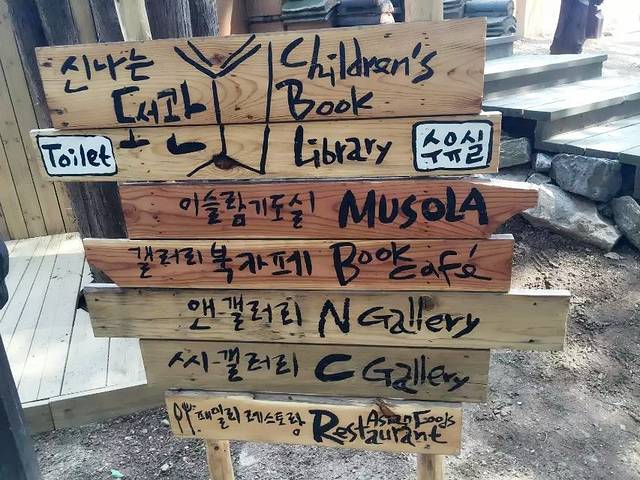 신나는 Children's
도서관 Book
Toilet Library 수유실
이슬람기도실 MUSOLA
갤러리북카페 Book Café
앤-갤러리 N Gallery
씨-갤러리 C Gallery
패밀리 레스토랑 Restaurant Asian Foods